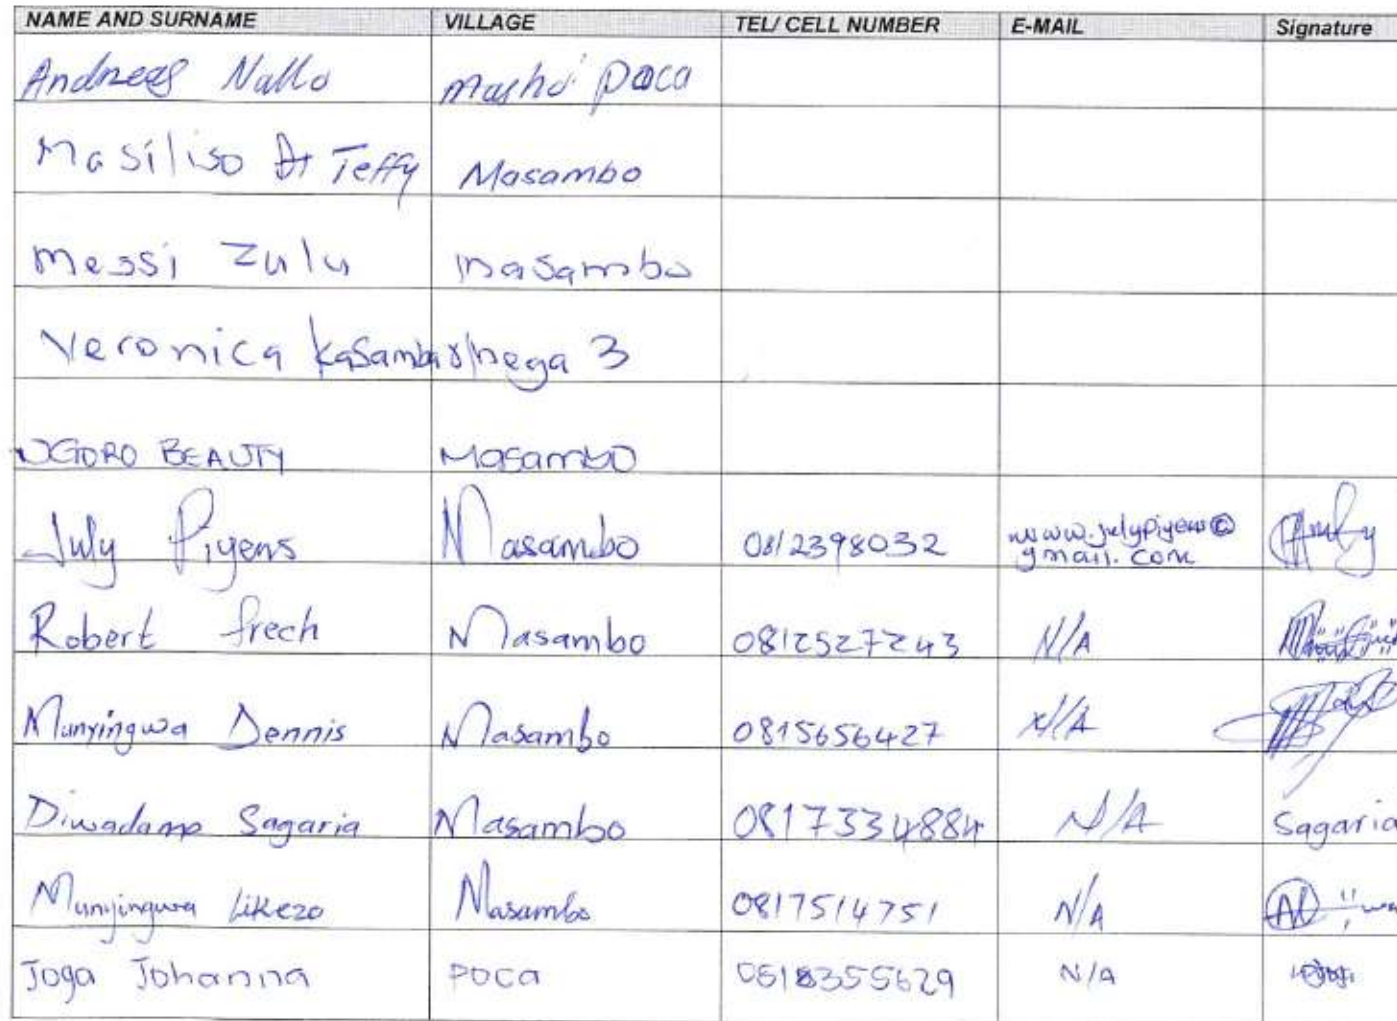 NAME AND SURNAME VILLAGE TEL/ CELL NUMBER E-MAIL Signature
Andreas Nallo Masho' Poca
Masiliso Teffy Masambo
Messi Zulu Masambo
Veronica Kasamba Omega 3
NGORO BEAUTY Masambo
July Piyens Masambo 0812398032 www.julypiyens@
gmail.com
Robert frech Masambo 0812527243 N/A
Munyingwa Dennis Masambo 0815656427 N/A
Diwadamo Sagaria Masambo 0817334884 N/A Sagaria
Munyingwa Likezo Masambo 0817514751 N/A
Joga Johanna POCA 0818355629 N/A